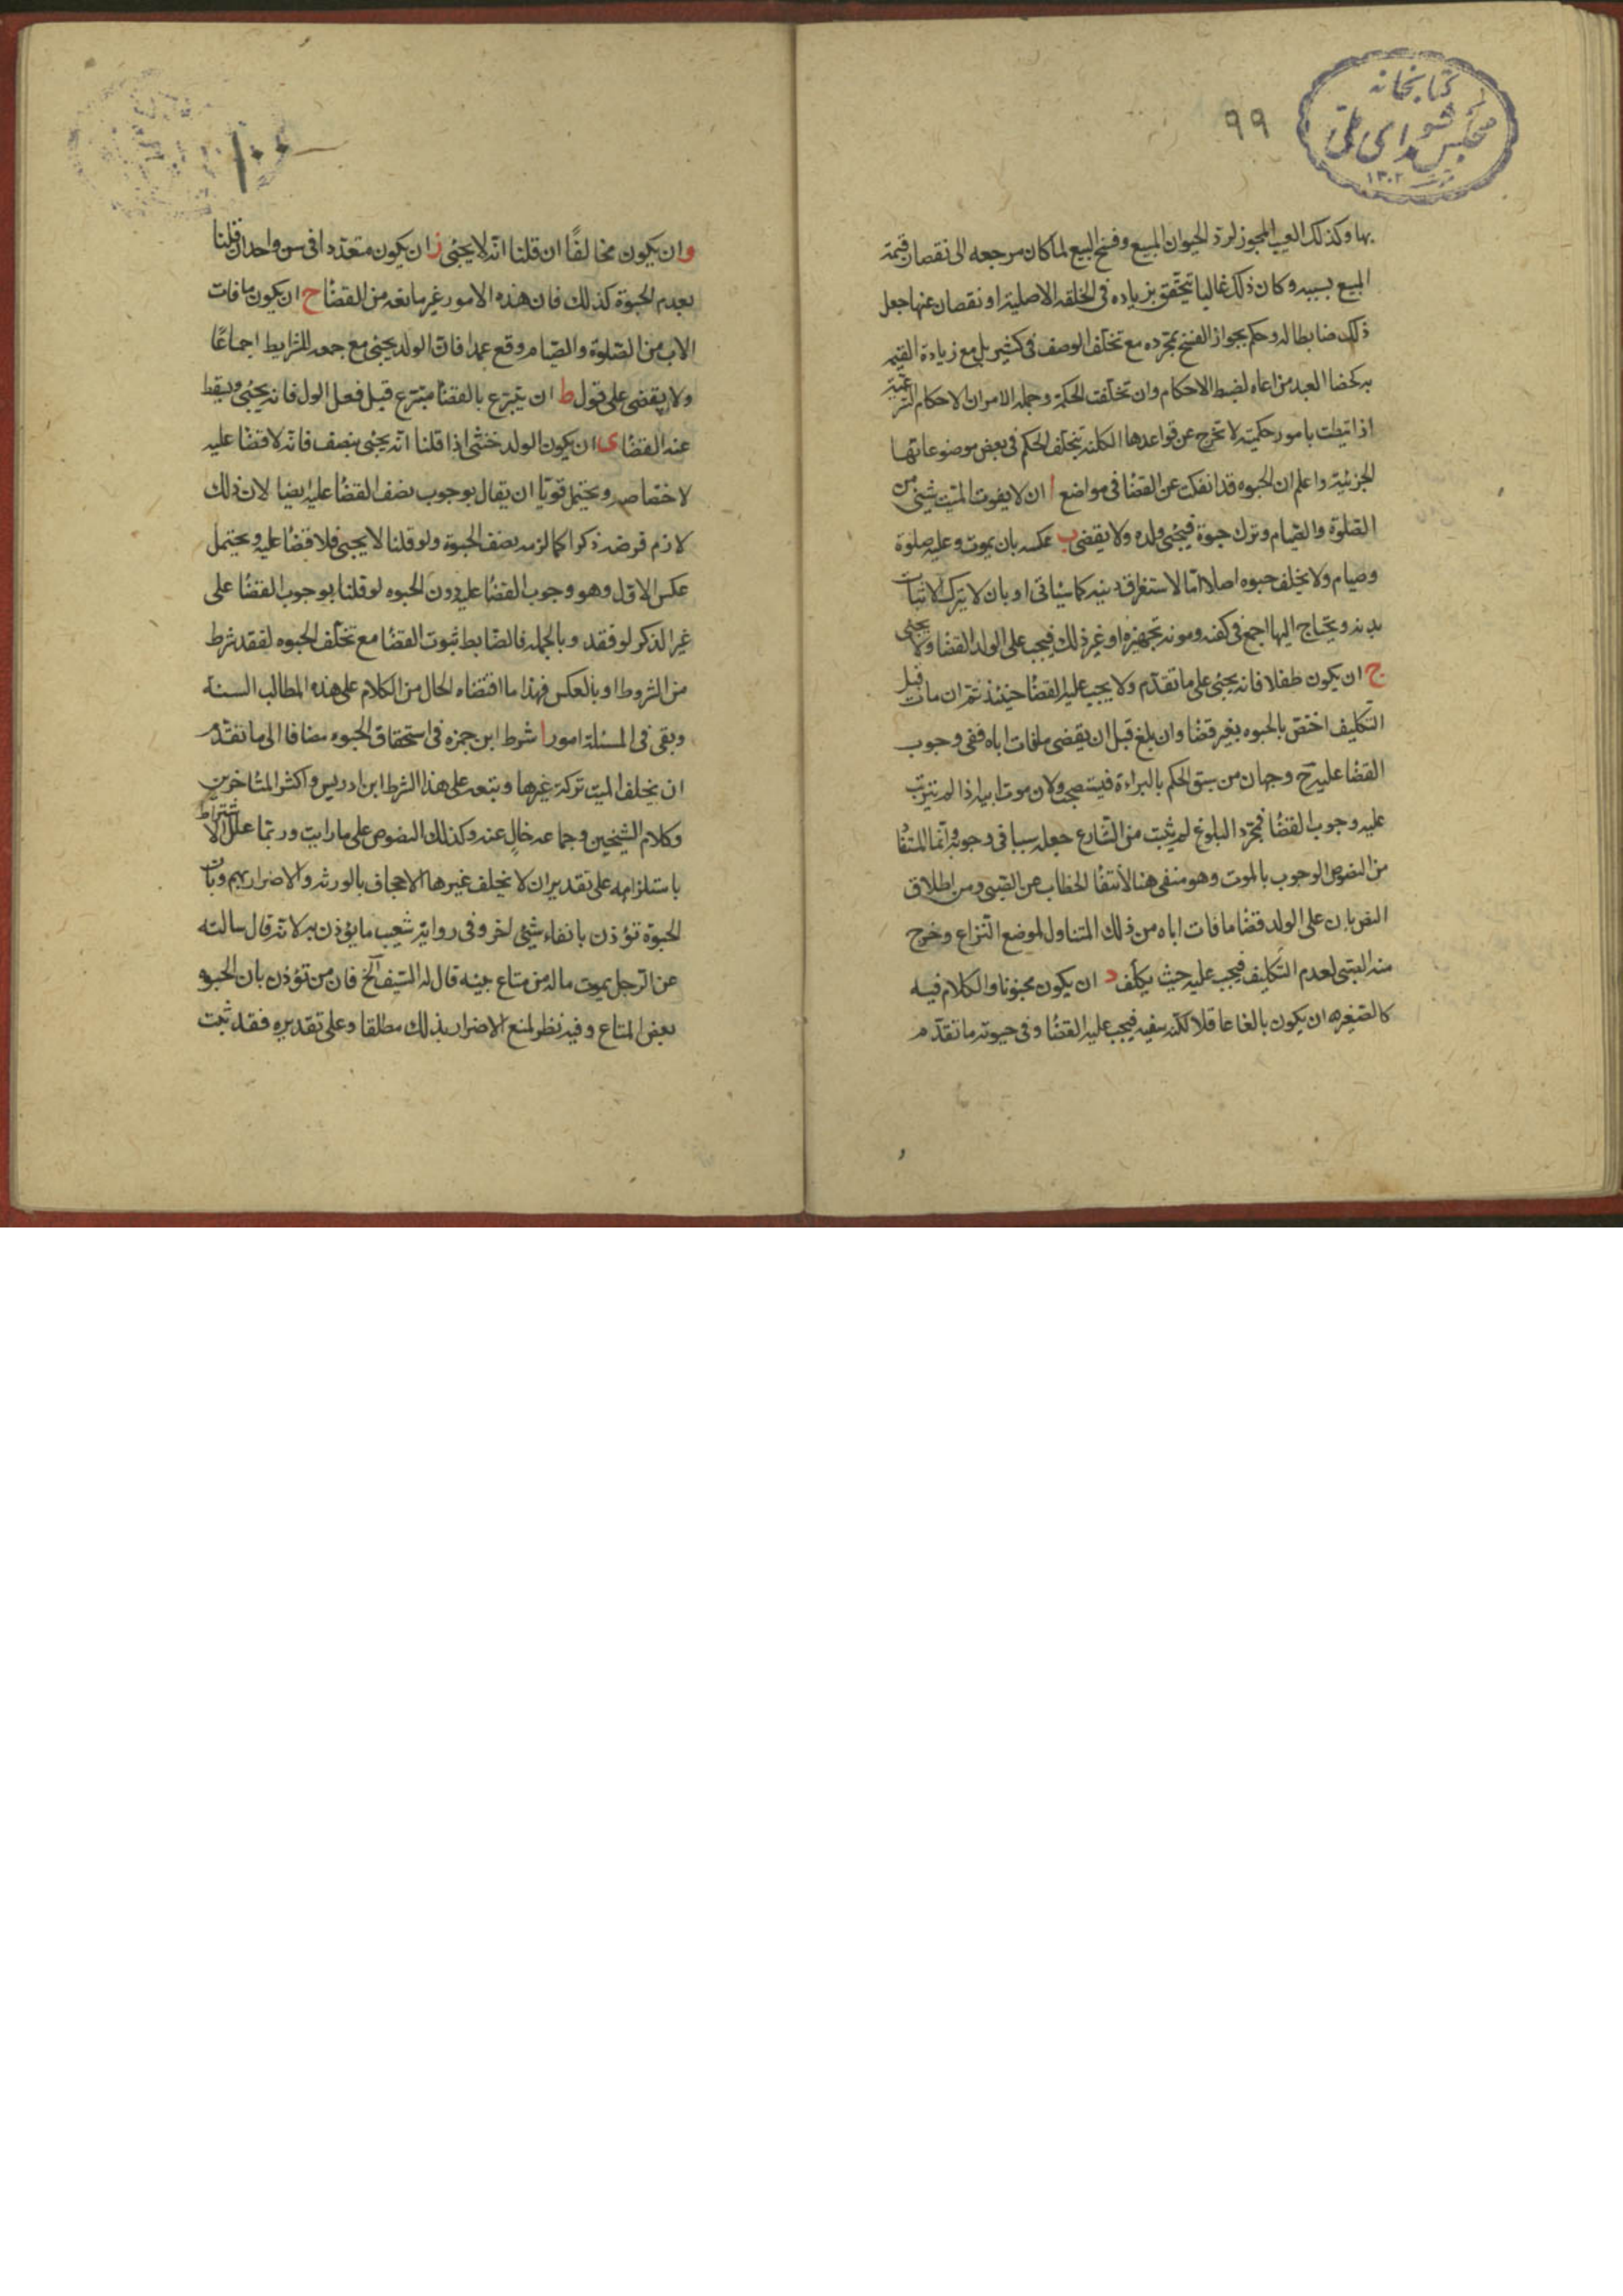 كتابخانه
مجلس شورای ملی
١٣٠٢
٩٩
بها وكذلك العيب المجوز لرد الحيوان المبيع وفسخ البيع لما كان مرجعه الى نقصان قيمة
المبيع بسببه وكان ذلك غالبا يتحقق بزياده فى الخلقه الاصلية او نقصان عنها جعل
ذلك ضابطا له وحكم بجواز الفسخ بمجرده مع تخلف الوصف فى كثير بل مع زيادة القيمه
به كخصا العبد مراعاه لضبط الاحكام وان تخلفت الحكمة وجملة الامر ان الاحكام الشرعية
اذا نيطت بامور حكمية لا تخرج عن قواعدها الكليه بتخلف الحكم فى بعض موضوعاتها
الجزئية واعلم ان الحبوه قد انفكت عن القضا فى مواضع ا ان لا يفوت الميت شيئ من
الصلوة والصيام وترك حبوة فيحبى ولده ولا يقضى ب عكسه بان يموت وعليه صلوة
وصيام ولا يخلف حبوه اصلا اما لاستغراق دينه كما سياتى او بان لا يترك الا ثياب
بدنه ويحتاج اليها اجمع فى كفنه ومونه تجهيزه او غير ذلك فيجب على الولد القضا ولا يحبى
ج ان يكون طفلا فانه يحبى على ما تقدم ولا يجب عليه القضا حينئذ ثم ان مات قبل
التكليف اختص بالحبوه بغير قضا وان بلغ قبل ان يقضى ما فات اباه ففى وجوب
القضا عليه ح وجهان من سبق الحكم بالبراءة فيستصحب ولان موت ابيه اذا لم يترتب
عليه وجوب القضا فمجرد البلوغ لم يثبت من الشارع جعله سببا فى وجوبه وانما المستفا
من النصوص الوجوب بالموت وهو منفى هنا لانتفا الخطاب عن الصبى ومن اطلاق
النص بان على الولد قضا ما فات اباه من ذلك المتناول لموضع النزاع وخرج
منه الصبى لعدم التكليف فيجب عليه حيث يكلف د ان يكون مجنونا والكلام فيه
كالصغير ه ان يكون بالغا عاقلا لكنه سفيه فيجب عليه القضا وفى حبوته ما تقدم
١٠٠
و ان يكون مخالفًا ان قلنا انه لا يحبى ز ان يكون متعددا فى سن واحد ان قلنا
بعدم الحبوة كذلك فان هذه الامور غير مانعه من القضا ح ان يكون ما فات
الاب من الصلوة والصيام وقع عمدا فان الولد يحبى مع جمعه للشرايط اجماعًا
ولا يقضى على قول ط ان يتبرع بالقضا متبرع قبل فعل الولد فانه يحبى ويسقط
عنه القضا ى ان يكون الولد خنثى اذا قلنا انه يحبى بنصف فانه لا قضا عليه
لاختصاصه ويحتمل قويا ان يقال بوجوب نصف القضا عليه ايضا لان ذلك
لازم فرضه ذكرا كما لزمه نصف الحبوة ولو قلنا لا يحبى فلا قضا عليه ويحتمل
عكس الاول وهو وجوب القضا عليه دون الحبوه لو قلنا بوجوب القضا على
غير الذكر لو فقد وبالجمله فالضابط ثبوت القضا مع تخلف الحبوه لفقد شرط
من الشروط او بالعكس فهذا ما اقتضاه الحال من الكلام على هذه المطالب الستة
وبقى فى المسئلة امور ا شرط ابن حمزه فى استحقاق الحبوه مضافا الى ما تقدم
ان يخلف الميت تركة غيرها وتبعه على هذا الشرط ابن ادريس واكثر المتاخرين
وكلام الشيخين وجماعه خالٍ عنه وكذلك النصوص على ما رايت وربما علل الاشتراط
باستلزامه على تقدير ان لا يخلف غيرها الاجحاف بالورثه والاضرار بهم وبان
الحبوة تؤذن بانفاء شيئ اخر وفى رواية شعيب ما يؤذن به لانه قال سالته
عن الرجل يموت ماله من متاع بيته قال له السيف الخ فان من تؤذن بان الحبوه
بعض المتاع وفيه نظر لمنع الاضرار بذلك مطلقا وعلى تقديره فقد ثبت